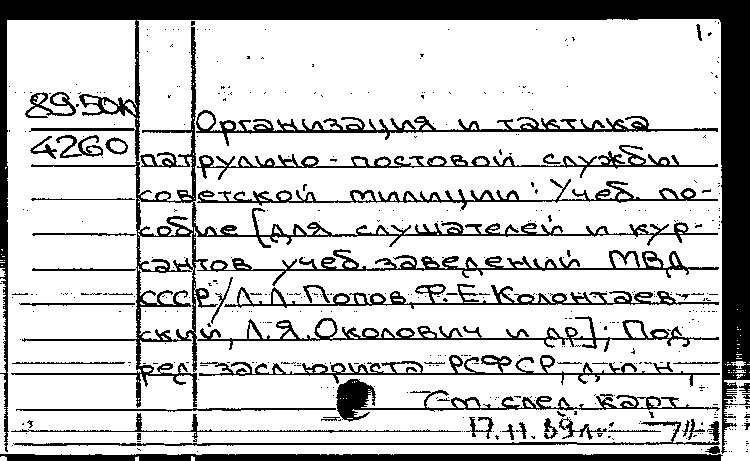 1.
89-50К
4260
Организация и тактика
патрульно-постовой службы
советской милиции: Учеб. по-
собие [для слушателей и кур-
сантов учеб. заведений МВД
СССР / Л.Л. Попов, Ф.Е. Колонтаев-
ский, Л.Я. Околович и др]; Под
ред. засл. юриста РСФСР, д.ю.н.,
См. след. карт.
17.11.89